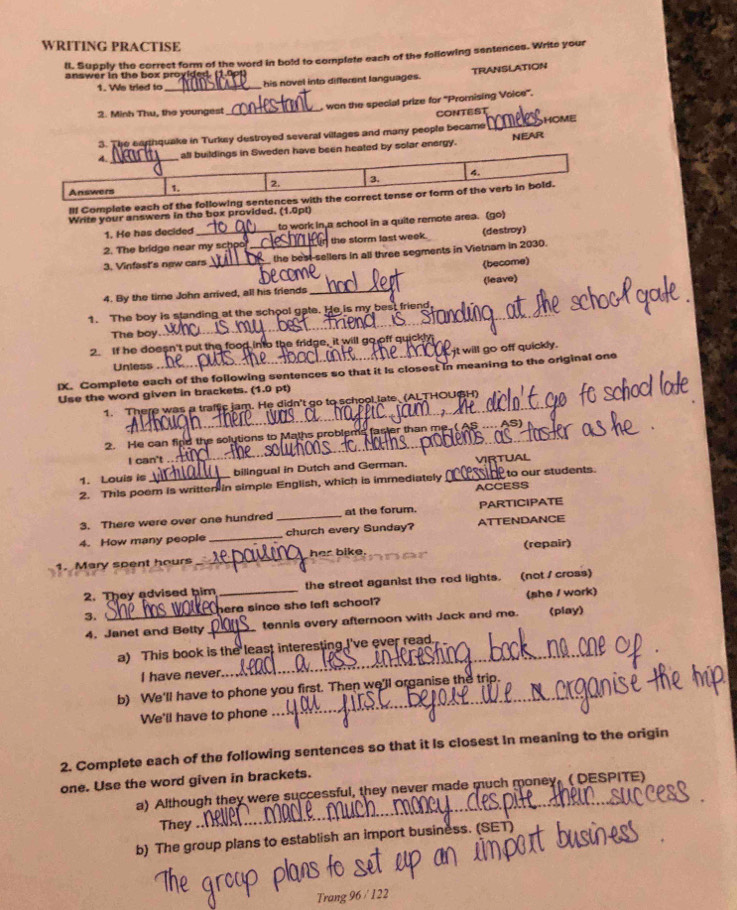 WRITING PRACTISE
II. Supply the correct form of the word in bold to complete each of the following sentences. Write your
answer in the box provided. (1.0pt)
1. We tried to translate his novel into different languages. TRANSLATION
2. Minh Thu, the youngest contestant, won the special prize for "Promising Voice". CONTEST
3. The earthquake in Turkey destroyed several villages and many people became homeless HOME
4. Nearly all buildings in Sweden have been heated by solar energy. NEAR
Answers 1. 2. 3. 4.
III Complete each of the following sentences with the correct tense or form of the verb in bold.
Write your answers in the box provided. (1.0pt)
1. He has decided to go to work in a school in a quite remote area. (go)
2. The bridge near my school destroyed the storm last week. (destroy)
3. Vinfast's new cars will be the best-sellers in all three segments in Vietnam in 2030.
become (become)
4. By the time John arrived, all his friends had left (leave)
1. The boy is standing at the school gate. He is my best friend.
The boy who is my best friend is standing at the school gate.
2. If he doesn't put the food into the fridge, it will go off quickly.
Unless he puts the food into the fridge, it will go off quickly.
IX. Complete each of the following sentences so that it is closest in meaning to the original one
Use the word given in brackets. (1.0 pt)
1. There was a traffic jam. He didn't go to school late. (ALTHOUGH)
Although there was a traffic jam, he didn't go to school late.
2. He can find the solutions to Maths problems faster than me. (AS .... AS)
I can't find the solutions to Maths problems as faster as he.
1. Louis is virtually bilingual in Dutch and German. VIRTUAL
2. This poem is written in simple English, which is immediately accessible to our students.
ACCESS
3. There were over one hundred ________ at the forum. PARTICIPATE
4. How many people ________ church every Sunday? ATTENDANCE
1. Mary spent hours repairing her bike. (repair)
2. They advised him ________ the street aganist the red lights. (not / cross)
3. She has worked here since she left school? (she / work)
4. Janet and Betty plays tennis every afternoon with Jack and me. (play)
a) This book is the least interesting I've ever read.
I have never read a less interesting book no one of.
b) We'll have to phone you first. Then we'll organise the trip.
We'll have to phone you first before we organise the trip
2. Complete each of the following sentences so that it is closest in meaning to the origin
one. Use the word given in brackets.
a) Although they were successful, they never made much money. (DESPITE)
They never made much money despite their success.
b) The group plans to establish an import business. (SET)
The group plans to set up an import business.
Trang 96 / 122